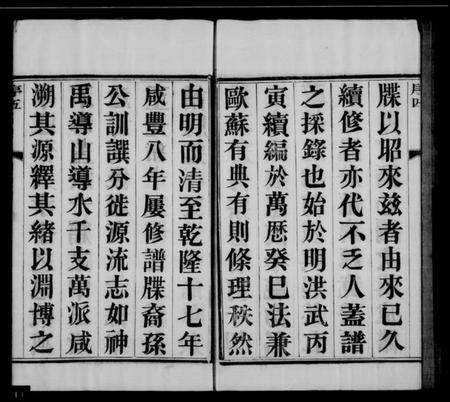 牒以昭來兹者由來已久
續修者亦代不乏人蓋譜
之採錄也始於明洪武丙
寅續編於萬厯癸巳法兼
歐蘇有典有則條理秩然
由明而清至乾隆十七年
咸豐八年屢修譜牒裔孫
公訓譔分徙源流志如神
禹導山導水千支萬派咸
溯其源繹其緒以淵博之
序五